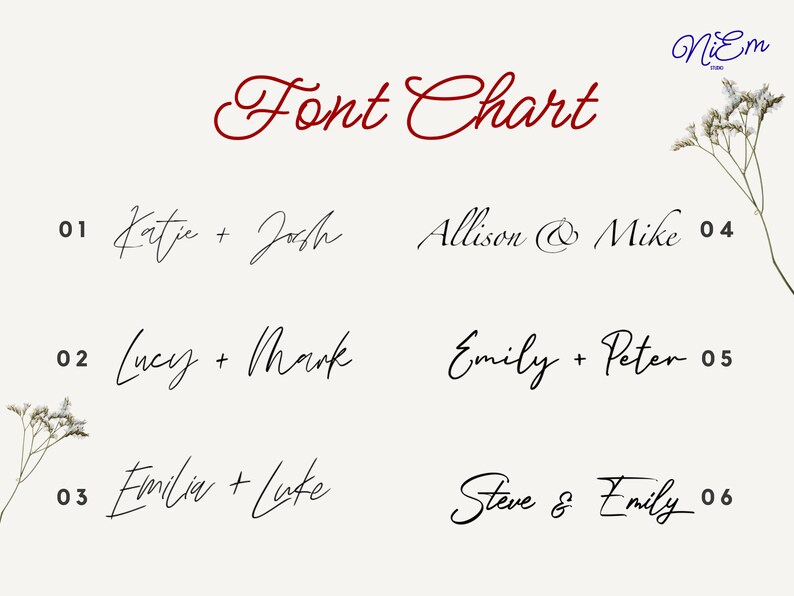 NiEm
STUDIO
Font Chart
01 Katie + Josh
Allison & Mike 04
02 Lucy + Mark
Emily + Peter 05
03 Emilia + Luke
Steve & Emily 06